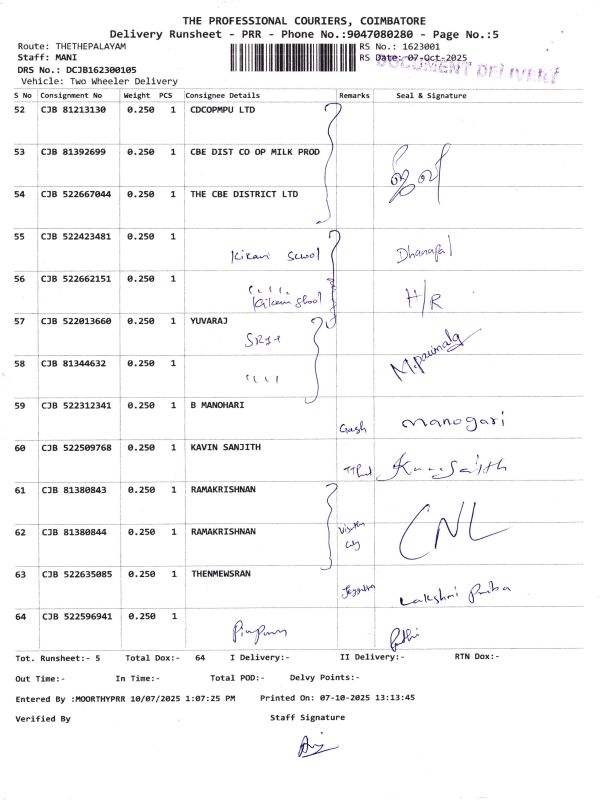 THE PROFESSIONAL COURIERS, COIMBATORE
Delivery Runsheet - PRR - Phone No.:9047080280 - Page No.:5
Route: THETHEPALAYAM
RS No.: 1623001
Staff: MANI
RS Date: 07-Oct-2025
DOCUMENT DELIVERY
DRS No.: DCJB162300105
Vehicle: Two Wheeler Delivery
S No Consignment No Weight PCS Consignee Details Remarks Seal & Signature
52 CJB 81213130 0.250 1 CDCOPMPU LTD
53 CJB 81392699 0.250 1 CBE DIST CO OP MILK PROD
54 CJB 522667044 0.250 1 THE CBE DISTRICT LTD
55 CJB 522423481 0.250 1
Kikani School Dhanapal
56 CJB 522662151 0.250 1
Kikani School H/R
57 CJB 522013660 0.250 1 YUVARAJ
58 CJB 81344632 0.250 1
59 CJB 522312341 0.250 1 B MANOHARI
manogari
60 CJB 522509768 0.250 1 KAVIN SANJITH
61 CJB 81380843 0.250 1 RAMAKRISHNAN
62 CJB 81380844 0.250 1 RAMAKRISHNAN
CNL
63 CJB 522635085 0.250 1 THENMEWSRAN
Lakshmi
64 CJB 522596941 0.250 1
Tot. Runsheet:- 5 Total Dox:- 64 I Delivery:- II Delivery:- RTN Dox:-
Out Time:- In Time:- Total POD:- Delvy Points:-
Entered By :MOORTHYPRR 10/07/2025 1:07:25 PM Printed On: 07-10-2025 13:13:45
Verified By Staff Signature